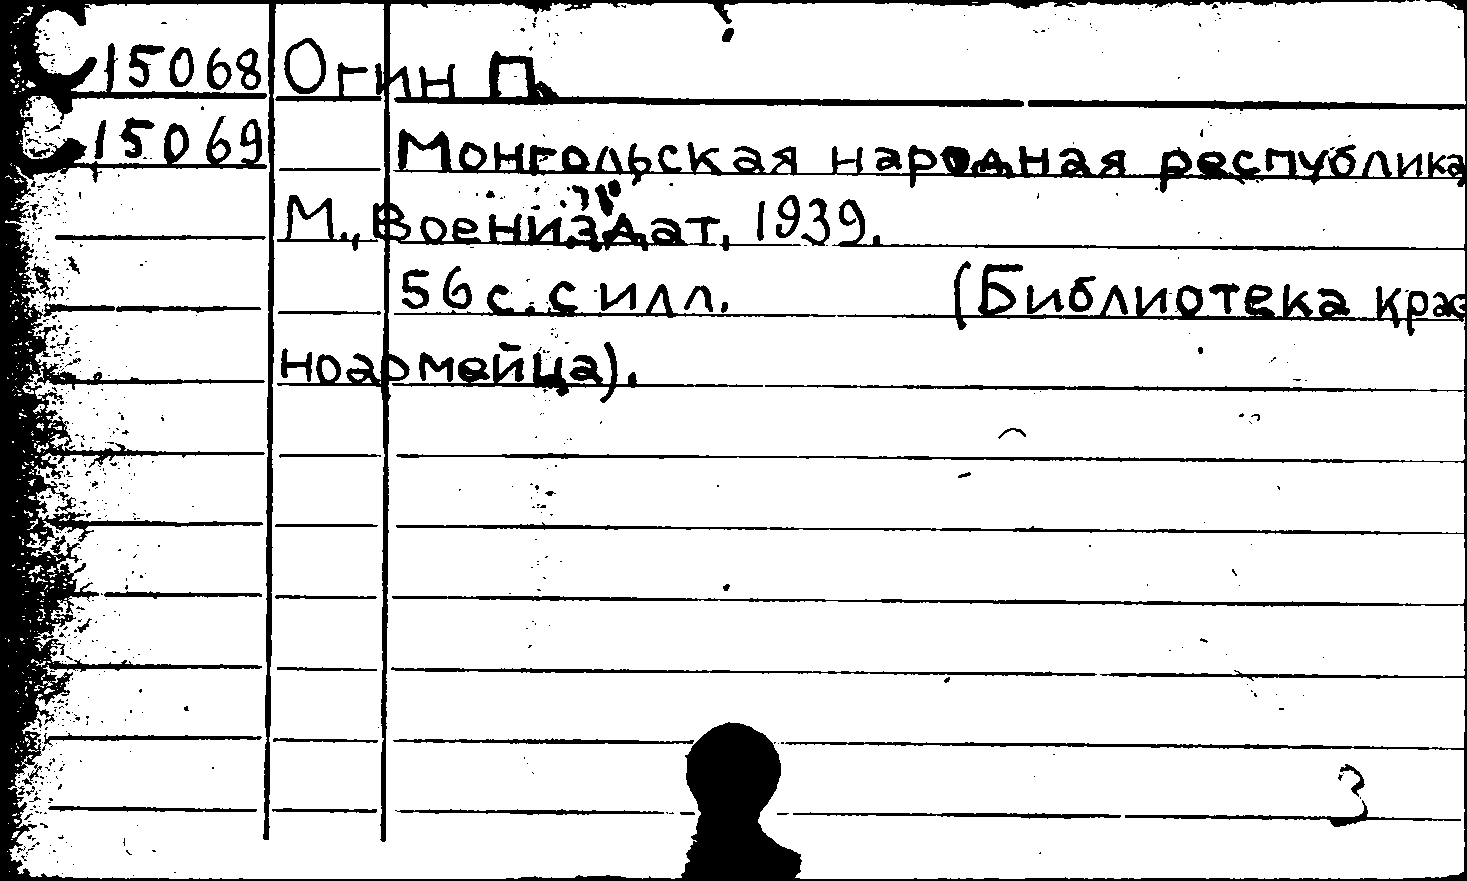 С15068 Огин П.
С15069 Монгольская народная республика
М., Воениздат, 1939.
56 с. с илл. (Библиотека крас
ноармейца).
3